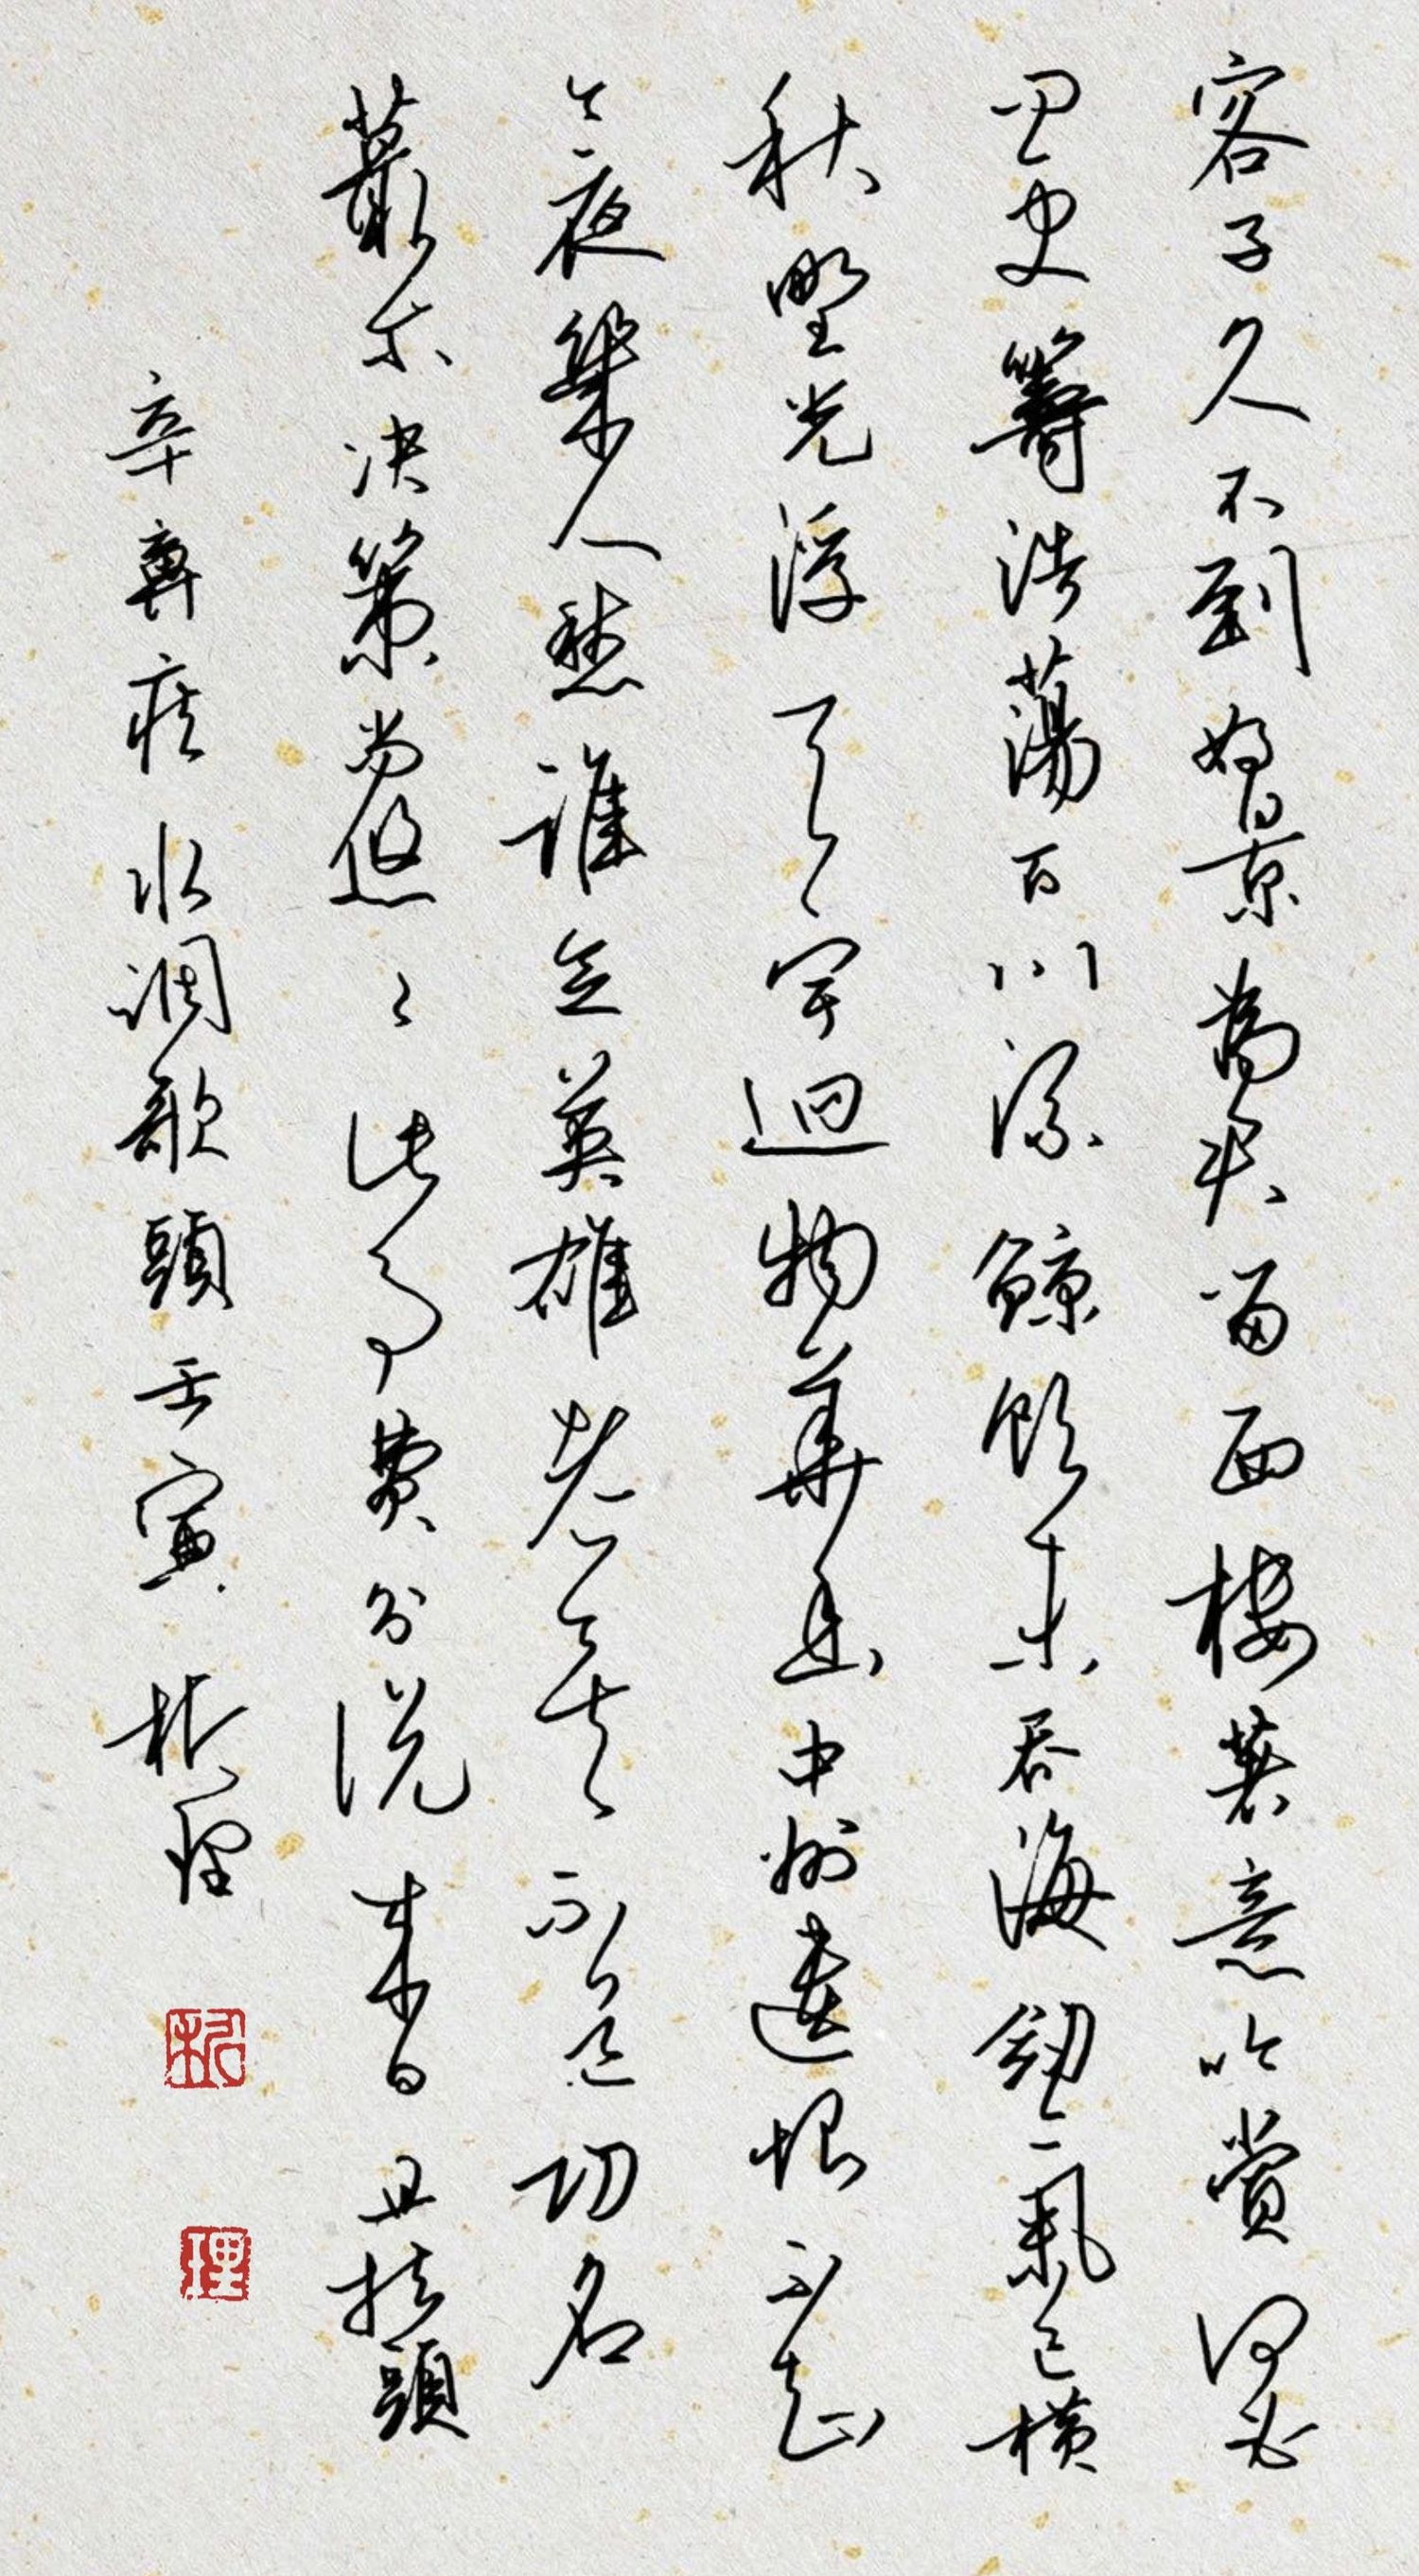 客子久不到好景為君留西樓著意吟賞何必
問更籌浩蕩百川流鯨飲未吞海劍氣已橫
秋野光浮天宇迥物華幽中州遺恨不知
今夜幾人愁誰念英雄老矣不道功名
蕞尔決策尚悠々此事費分說來日且扶頭
辛棄疾水調歌頭壬寅 理
理